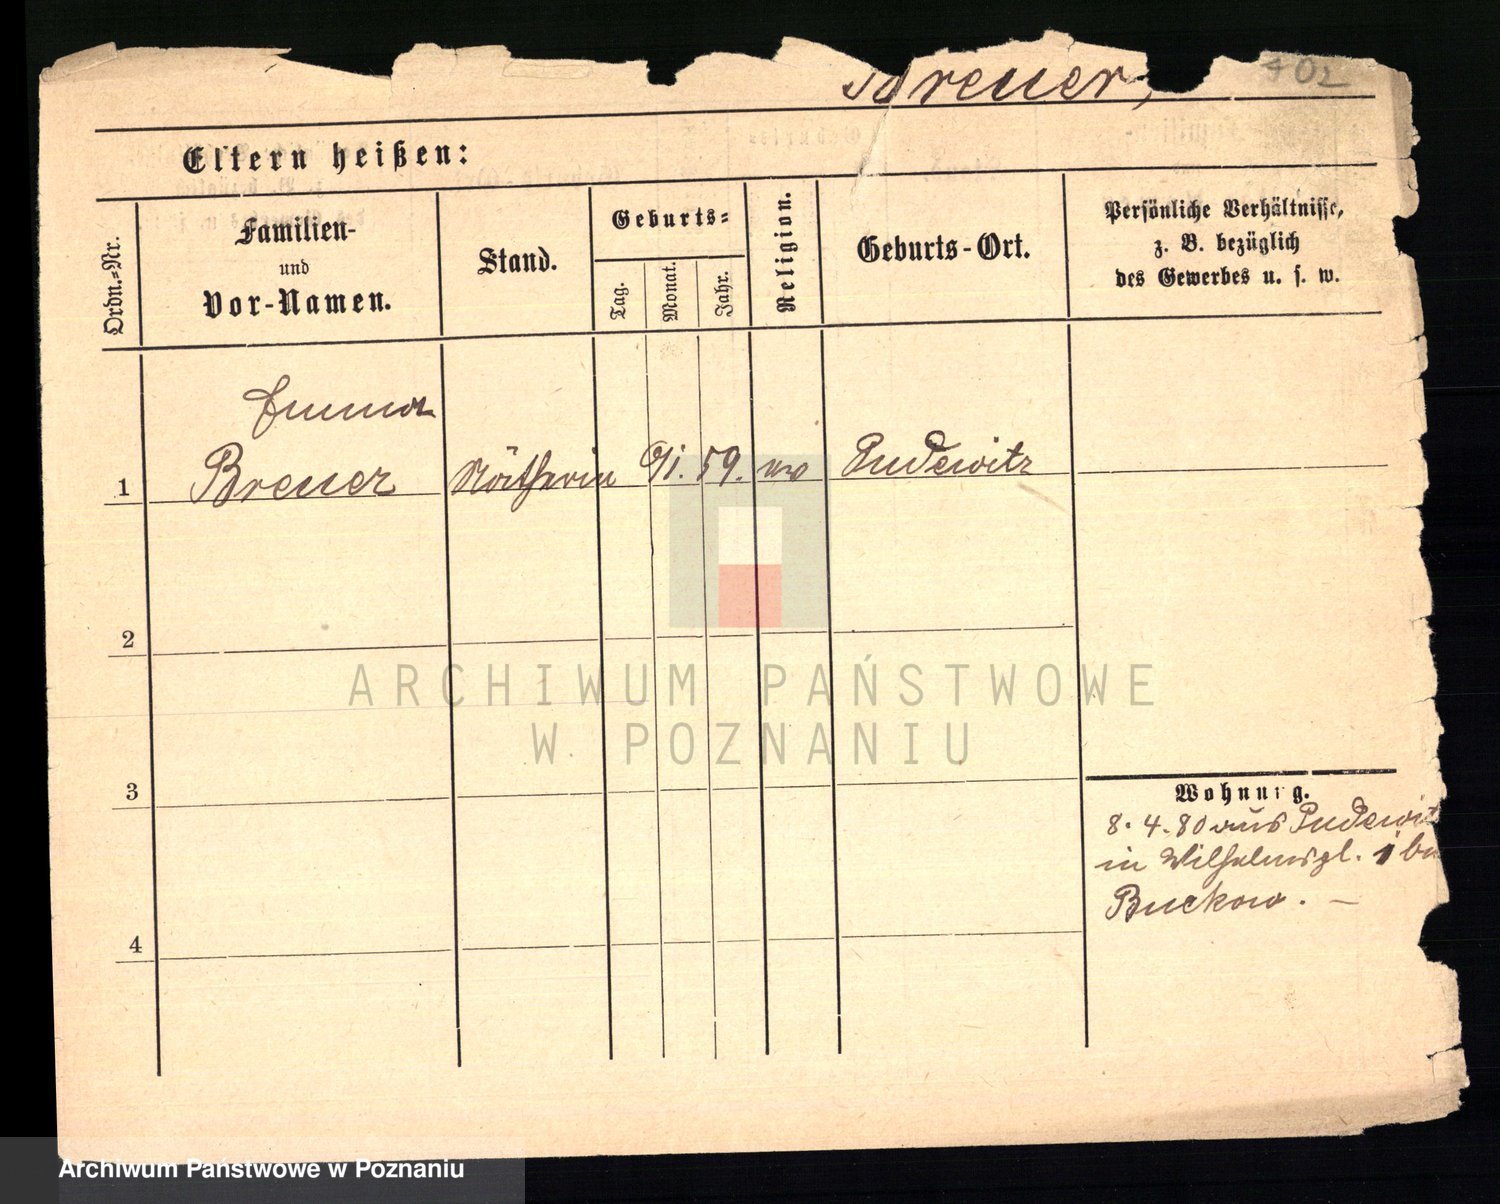 Breuer,
402
Eltern heißen:
Ordn.-Nr.
Familien-
und
Vor-Namen.
Stand.
Geburts-
Tag.
Monat.
Jahr.
Religion.
Geburts-Ort.
Persönliche Verhältnisse,
z. B. bezüglich
des Gewerbes u. s. w.
Emma
1 Breuer Nätherin 9/1. 59. ev Pudewitz
2
3
4
Wohnung.
8. 4. 80 aus Pudewit
in Wilhelmspl. 1 bei
Buckow. —
ARCHIWUM PAŃSTWOWE
W POZNANIU
Archiwum Państwowe w Poznaniu